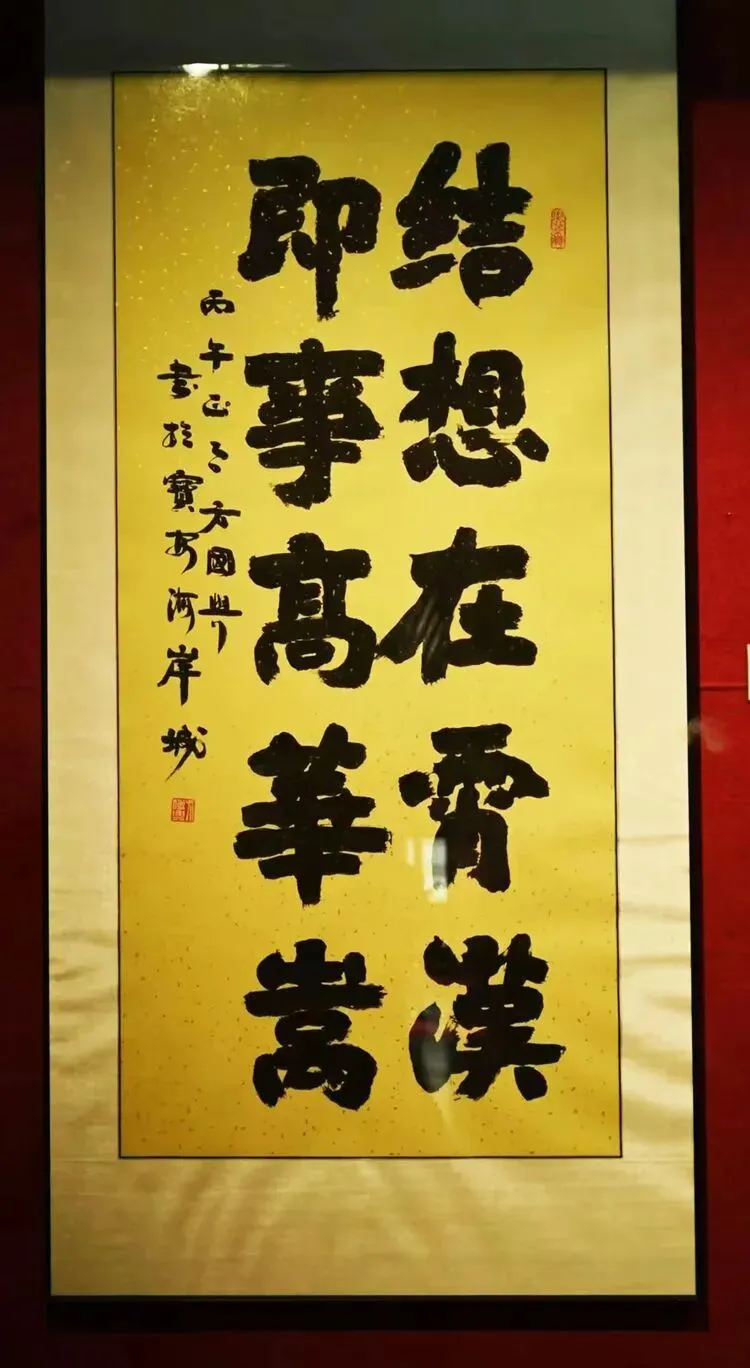 结想在霄漢
即事高華嵩
丙午正月方國興
書於寶安海岸城